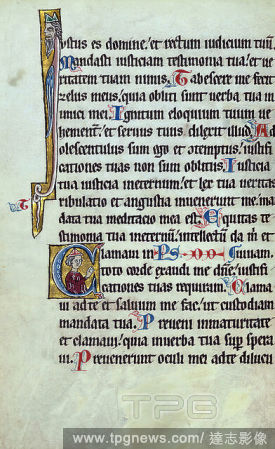 Iustus es domine. et rectum iudicium tuum.
Mandasti iusticiam testimonia tua. et ve
ritatem tuam nimis. Tabescere me fecit
zelus meus. quia obliti sunt verba tua in
imici mei. Ignitum eloquium tuum ve
hementer. et servus tuus dilexit illud. Ad
olescentulus sum ego et contemptus. iustifi
cationes tuas non sum oblitus. Iusticia
tua iusticia in eternum. et lex tua veritas.
T
ribulatio et angustia invenerunt me. man
data tua meditacio mea est. Equitas te
stimonia tua in eternum. intellectum da michi et
Clamavi in
toto corde exaudi me domine. iustifi
cationes tuas requiram. Clama
vi ad te et salvum me fac. ut custodiam
mandata tua. Preveni in maturitate
et clamavi. quia in verba tua super spera
vi. Prevenerunt oculi mei ad te diluculo
TPG
www.tpgnews.com / 達志影像